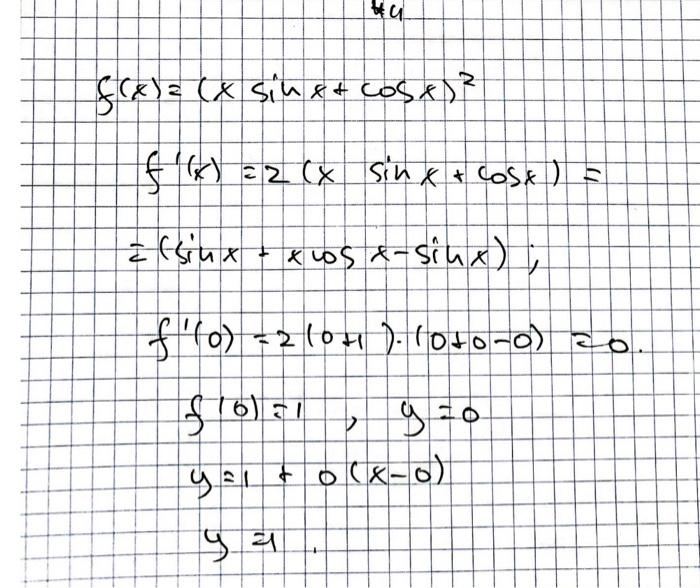 #4
f(x) = (x sin x + cos x)²
f'(x) = 2 (x sin x + cos x) =
= (sin x + x cos x - sin x) ;
f'(0) = 2 (0+1) · (0+0-0) = 0.
f(0) = 1 , y = 0
y = 1 + 0 (x-0)
y = 1 .